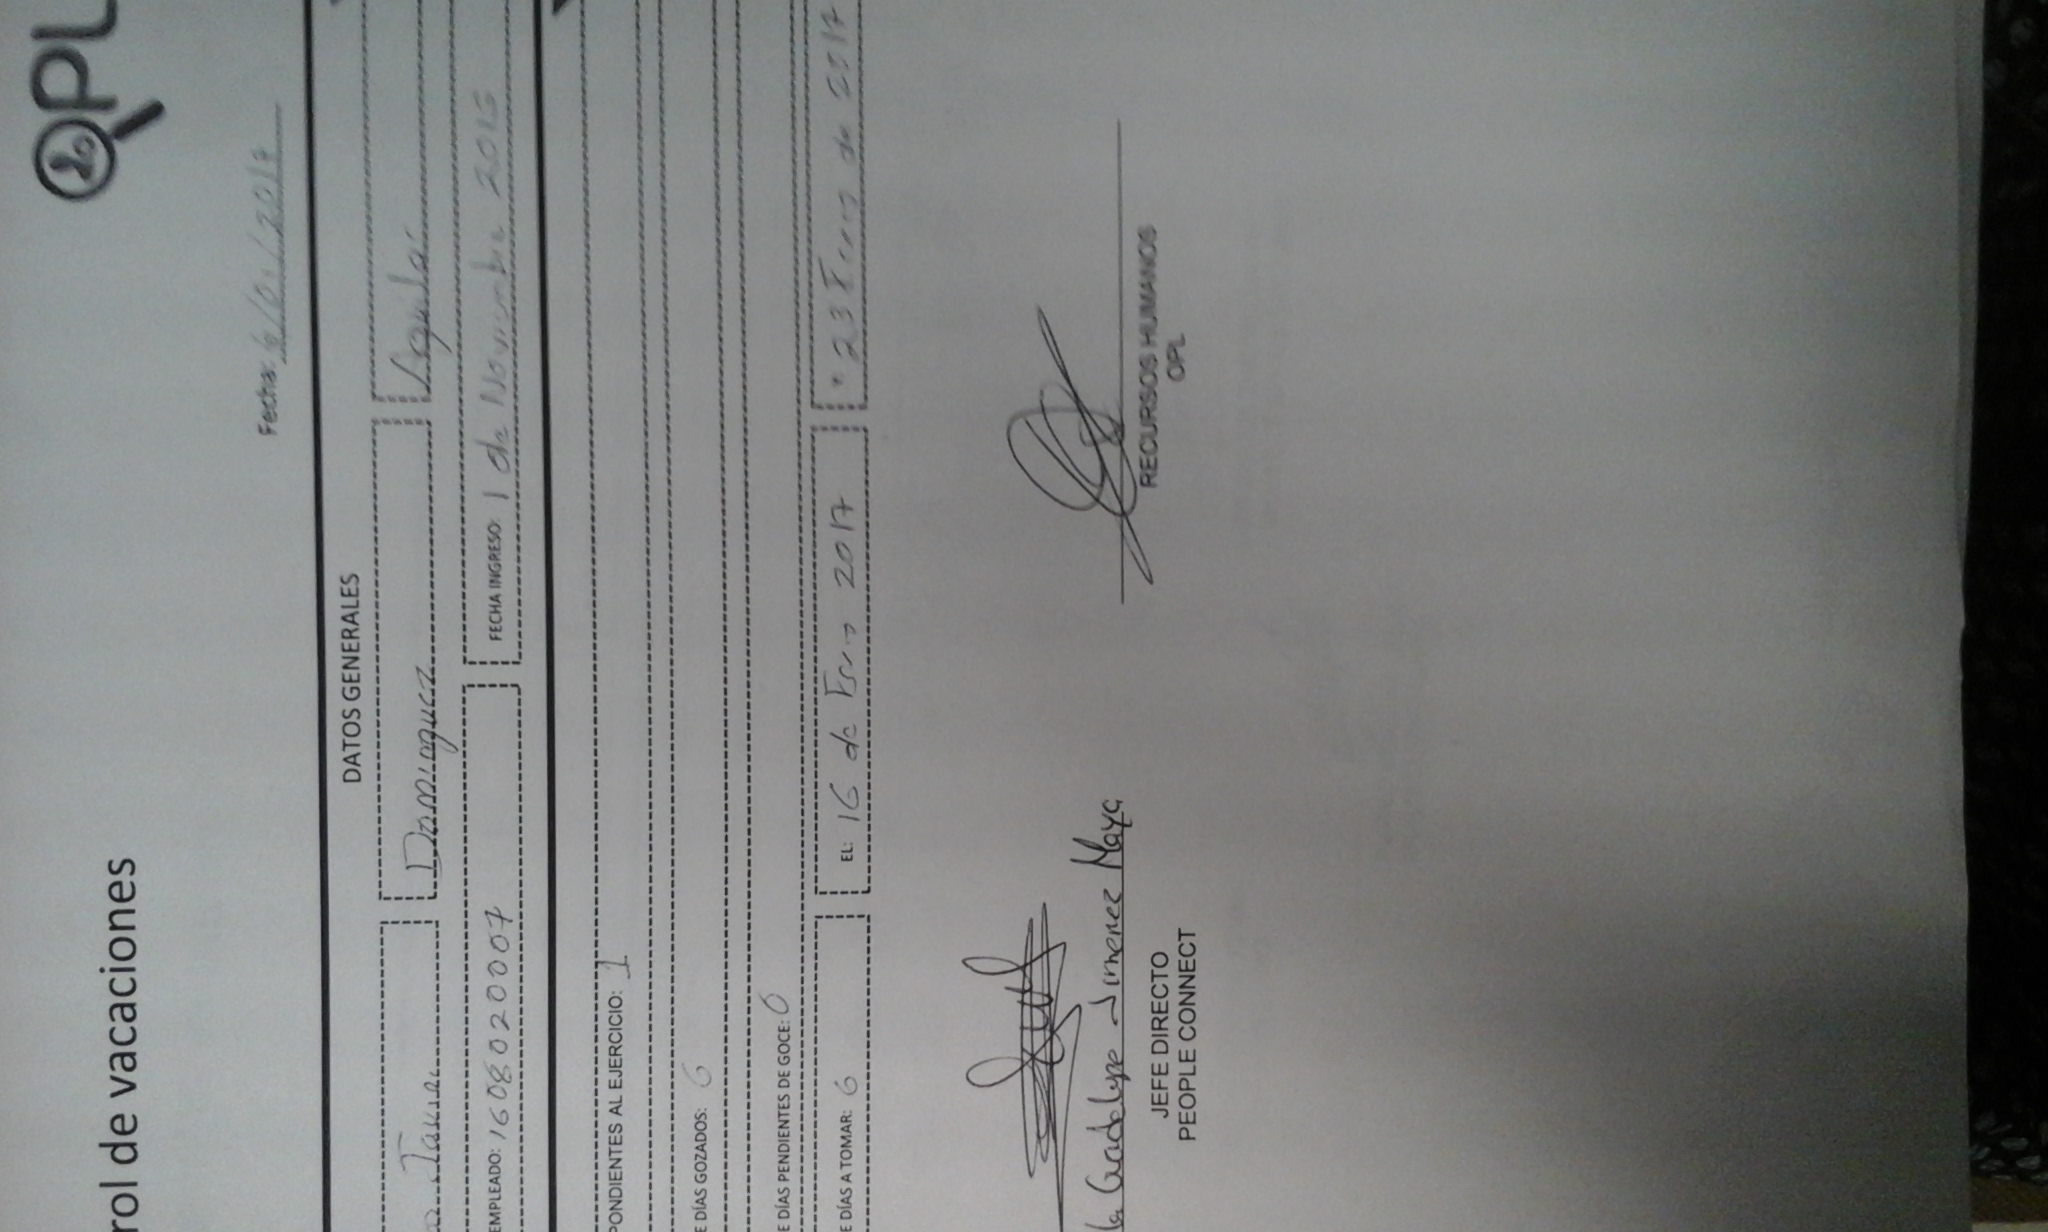 OPL
rol de vacaciones
Fecha: 6/01/2017
DATOS GENERALES
o Javier Dominguez Aguilar
EMPLEADO: 1608020007 FECHA INGRESO: 1 de Noviembre 2015
PONDIENTES AL EJERCICIO: 1
E DÍAS GOZADOS: 6
E DÍAS PENDIENTES DE GOCE: 0
E DÍAS A TOMAR: 6 EL: 16 de Enero 2017 23 Enero de 2017
la Guadelupe Jimenez Maya
JEFE DIRECTO RECURSOS HUMANOS
PEOPLE CONNECT OPL